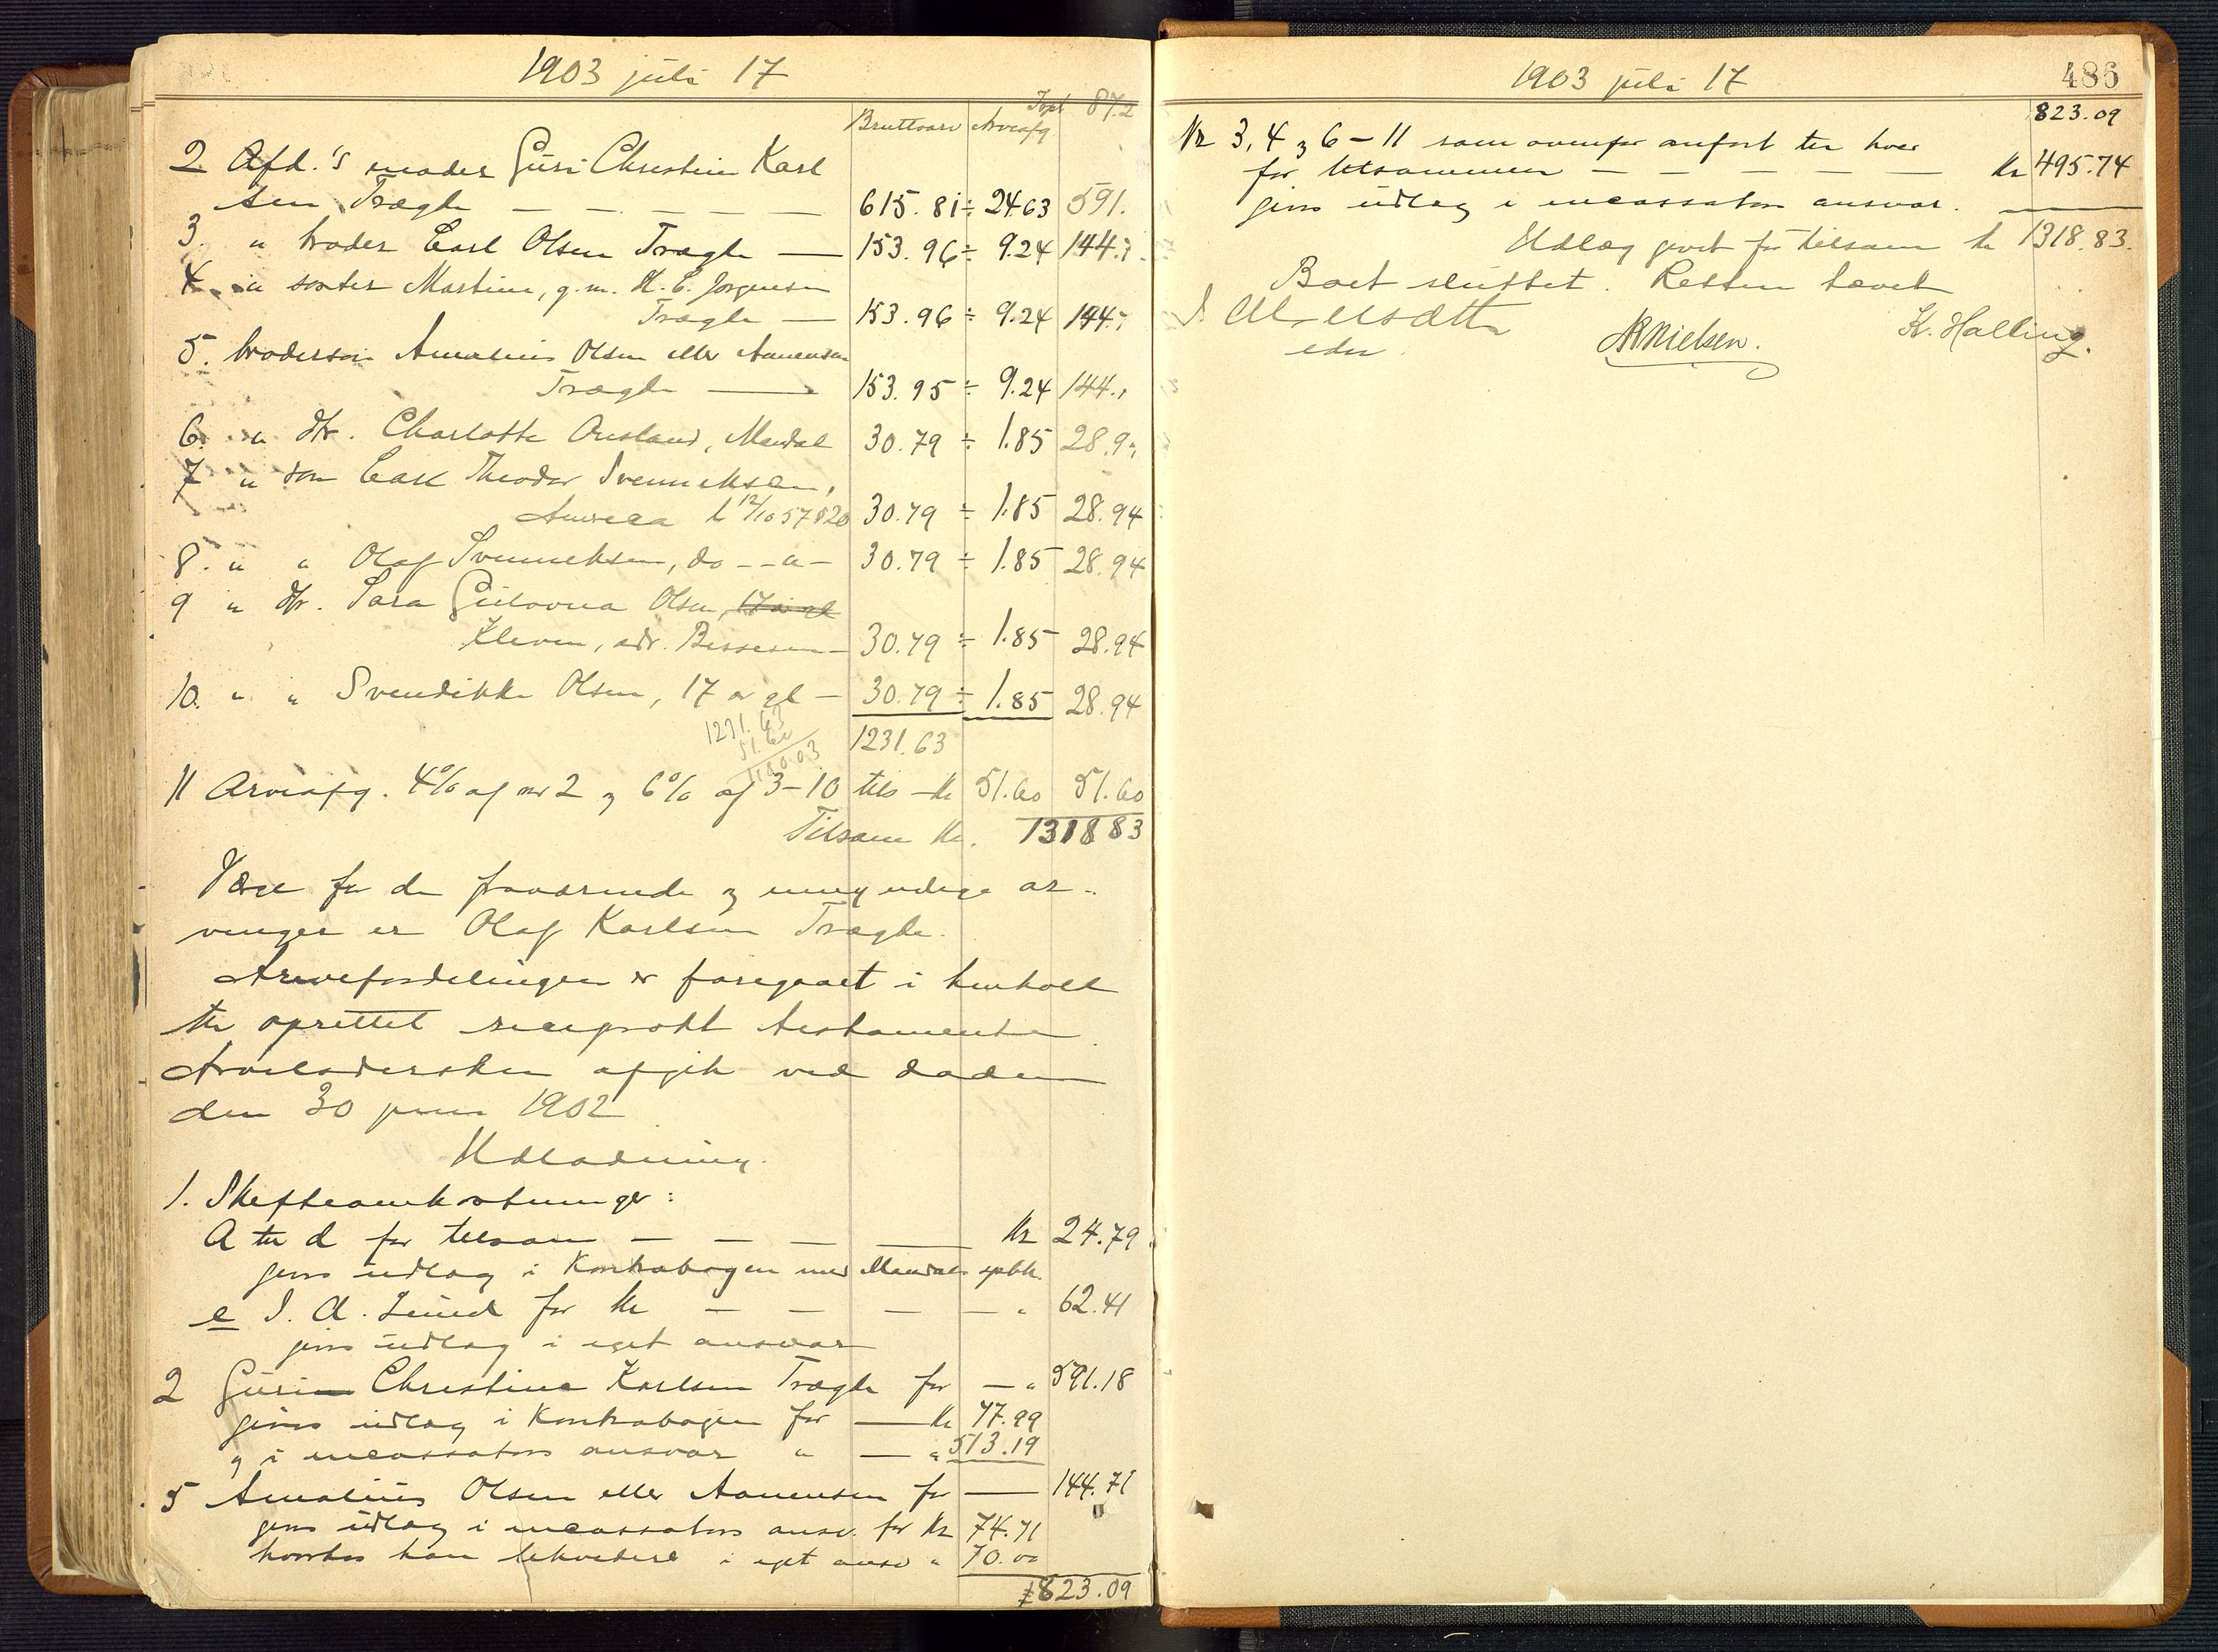 1903 juli 17
Tspt 87.2
Bruttoarv Arveafg.
2 Afd.'s moder Guri Christine Karl
sen Trægde — — — — — 615.81 ÷ 24.63 591.
3. " broder Carl Olsen Trægde — 153.96 ÷ 9.24 144.7
4. " søster Martine, g.m. H. C. Jørgensen
Trægde — 153.96 ÷ 9.24 144.7
5. brodersøn Amalius Olsen eller Aanensen
Trægde — 153.95 ÷ 9.24 144.7
6. " dtr. Charlotte Ousland, Mandal 30.79 ÷ 1.85 28.9
7 " søn Carl Theodor Svenneksen,
America 30.79 ÷ 1.85 28.94
8. " " Olaf Svenneksen, do - - " - 30.79 ÷ 1.85 28.94
9 " dtr. Sara Gulovna Olsen, 17 år gl
Kleven, adr. 30.79 ÷ 1.85 28.94
10. " " Svendikke Olsen, 17 år gl — 30.79 ÷ 1.85 28.94
1231.63
51.60
1180.03
1231.63
11 Arveafg. 4% af nr 2 og 6% af 3-10 tils - Kr 51.60 51.60
Tilsam Kr. 1318 83
Værge for de fraværende og umyndige ar-
vinger er Olaf Karlsen Trægde.
Arvefordelingen er foregaaet i henhold
til oprettet reciprokt testamente
Arveladersken afgik ved døden
den 30 juni 1902
Udlodning.
1. Skifteomkostninger:
A til d for tilsam — — — Kr 24.79
gives udlæg i Kontrabogen med Mandals spbk.
e I. A. Lund for Kr — — — — " 62.41
gives udlæg i eget ansvar
2 Gurine Christine Karlsen Trægde for — " 591.18
gives udlæg i Kontrabogen for — Kr 77.99
og i incassators ansvar " — " 513.19
5 Amalius Olsen eller Aanensen for — 144.71
gives udlæg i incassators ansv. for Kr 74.71
hvorhos han likviderer i eget ansv " 70.00
823.09
1903 juli 17
486
823.09
Nr 3, 4 og 6 - 11 som ovenfor anført til hver
for tilsammen — — — — — Kr 495.74
gives udlæg i incassators ansvar.
Udlæg givet for tilsam Kr 1318.83.
Boet sluttet. Retten hævet
edsv.
Nielsen.
K. Halling.